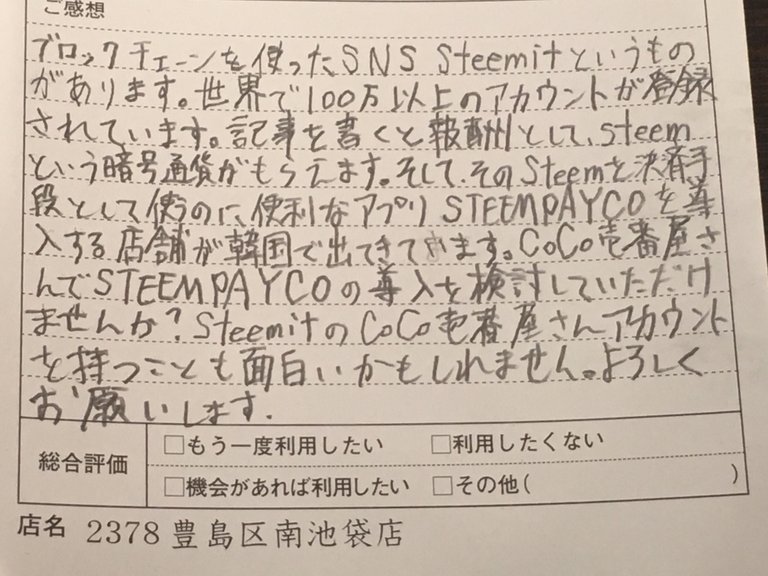 ご感想
ブロックチェーンを使ったSNS Steemitというもの
があります。世界で100万以上のアカウントが登録
されています。記事を書くと報酬として、steem
という暗号通貨がもらえます。そして、そのSteemを決済手
段として使うのに、便利なアプリ STEEMPAYCOを導
入する店舗が韓国で出てきてます。CoCo壱番屋さ
んでSTEEMPAYCOの導入を検討していただけ
ませんか?SteemitのCoCo壱番屋さんアカウント
を持つことも面白いかもしれません。よろしく
お願いします.
総合評価
□もう一度利用したい □利用したくない
□機会があれば利用したい □その他( )
店名 2378 豊島区南池袋店